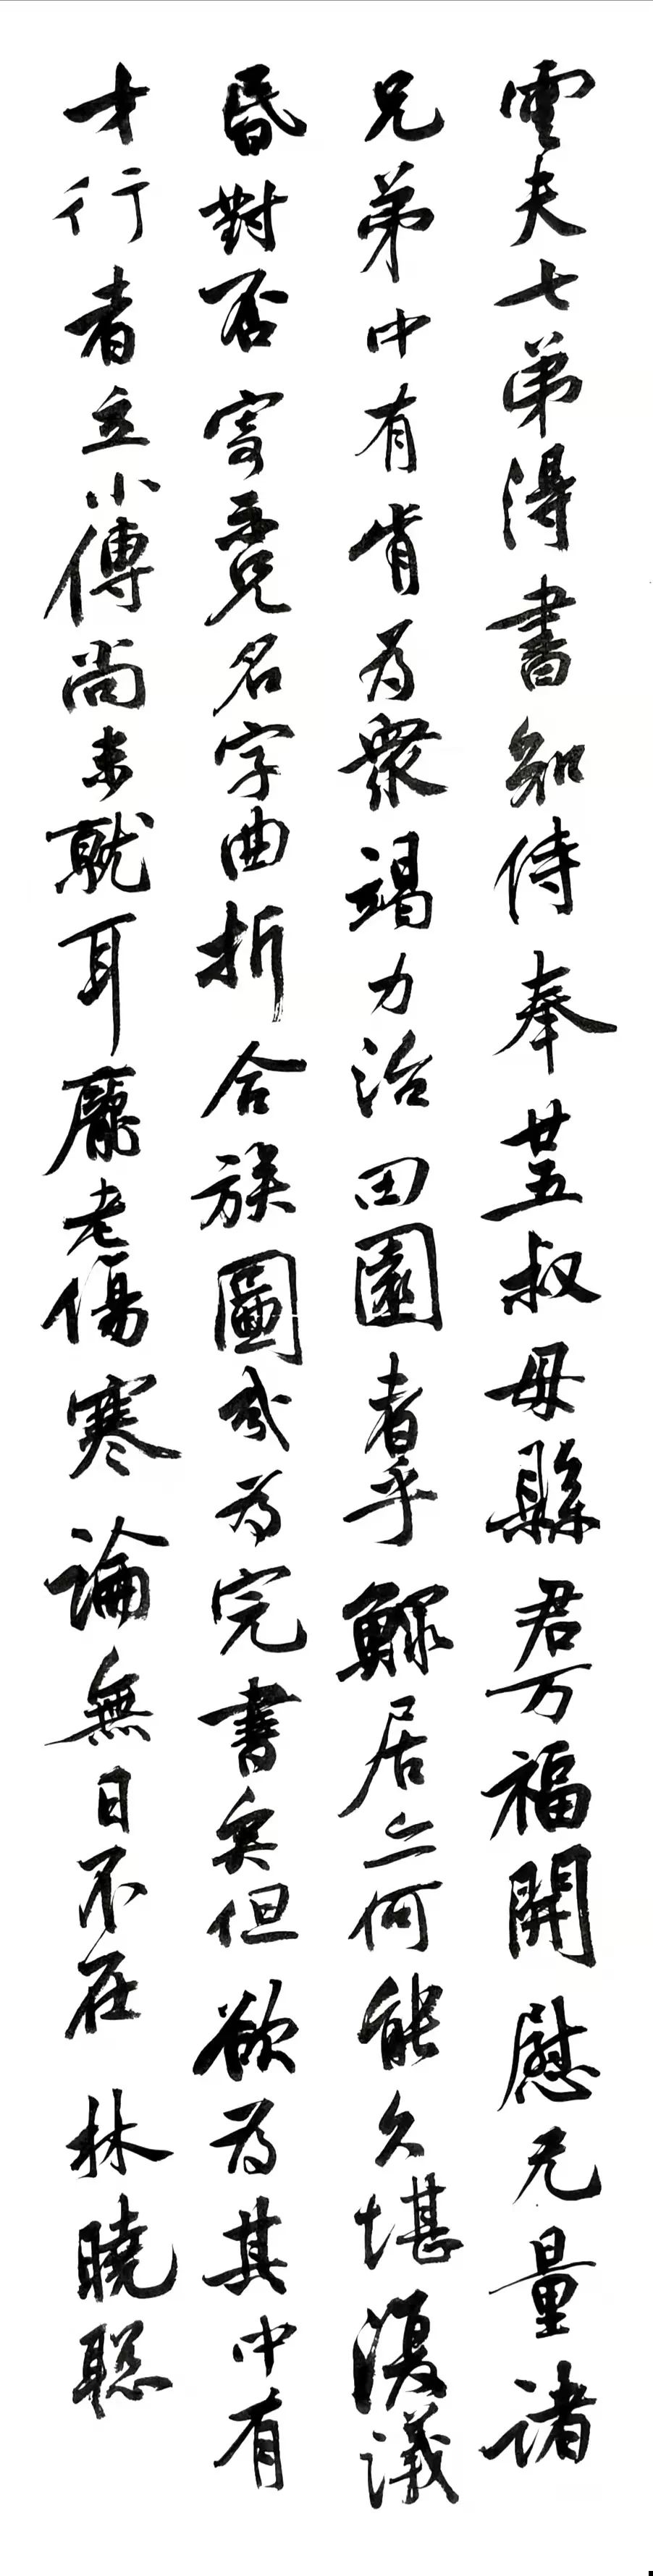 雲夫七弟得書知侍奉廿五叔母縣君万福開慰无量諸
兄弟中有肯為衆竭力治田園者乎鰥居亦何能久堪復議
昏對否寄示兒名字曲折合族圖幾為完書矣但欲為其中有
才行者立小傳尚未就耳龐老傷寒論無日不在 林曉聪